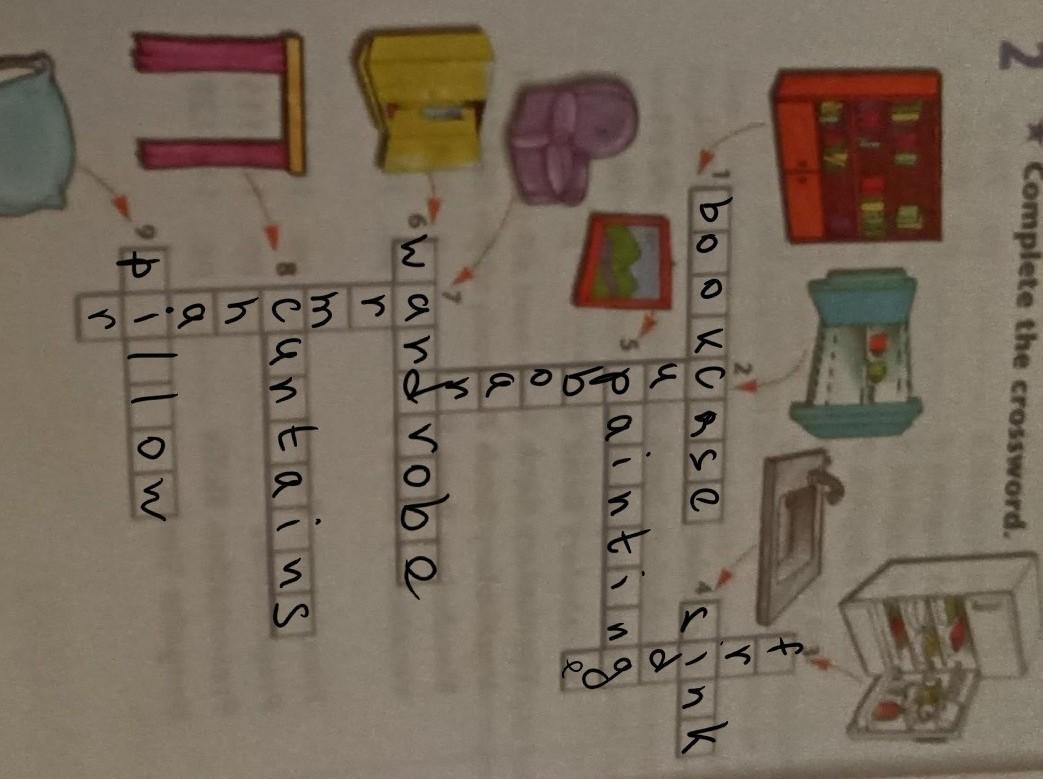 2 ★ Complete the crossword.
1 bookcase
2 cupboard
3 fridge
4 sink
5 painting
6 wardrobe
7 armchair
8 curtains
9 pillow